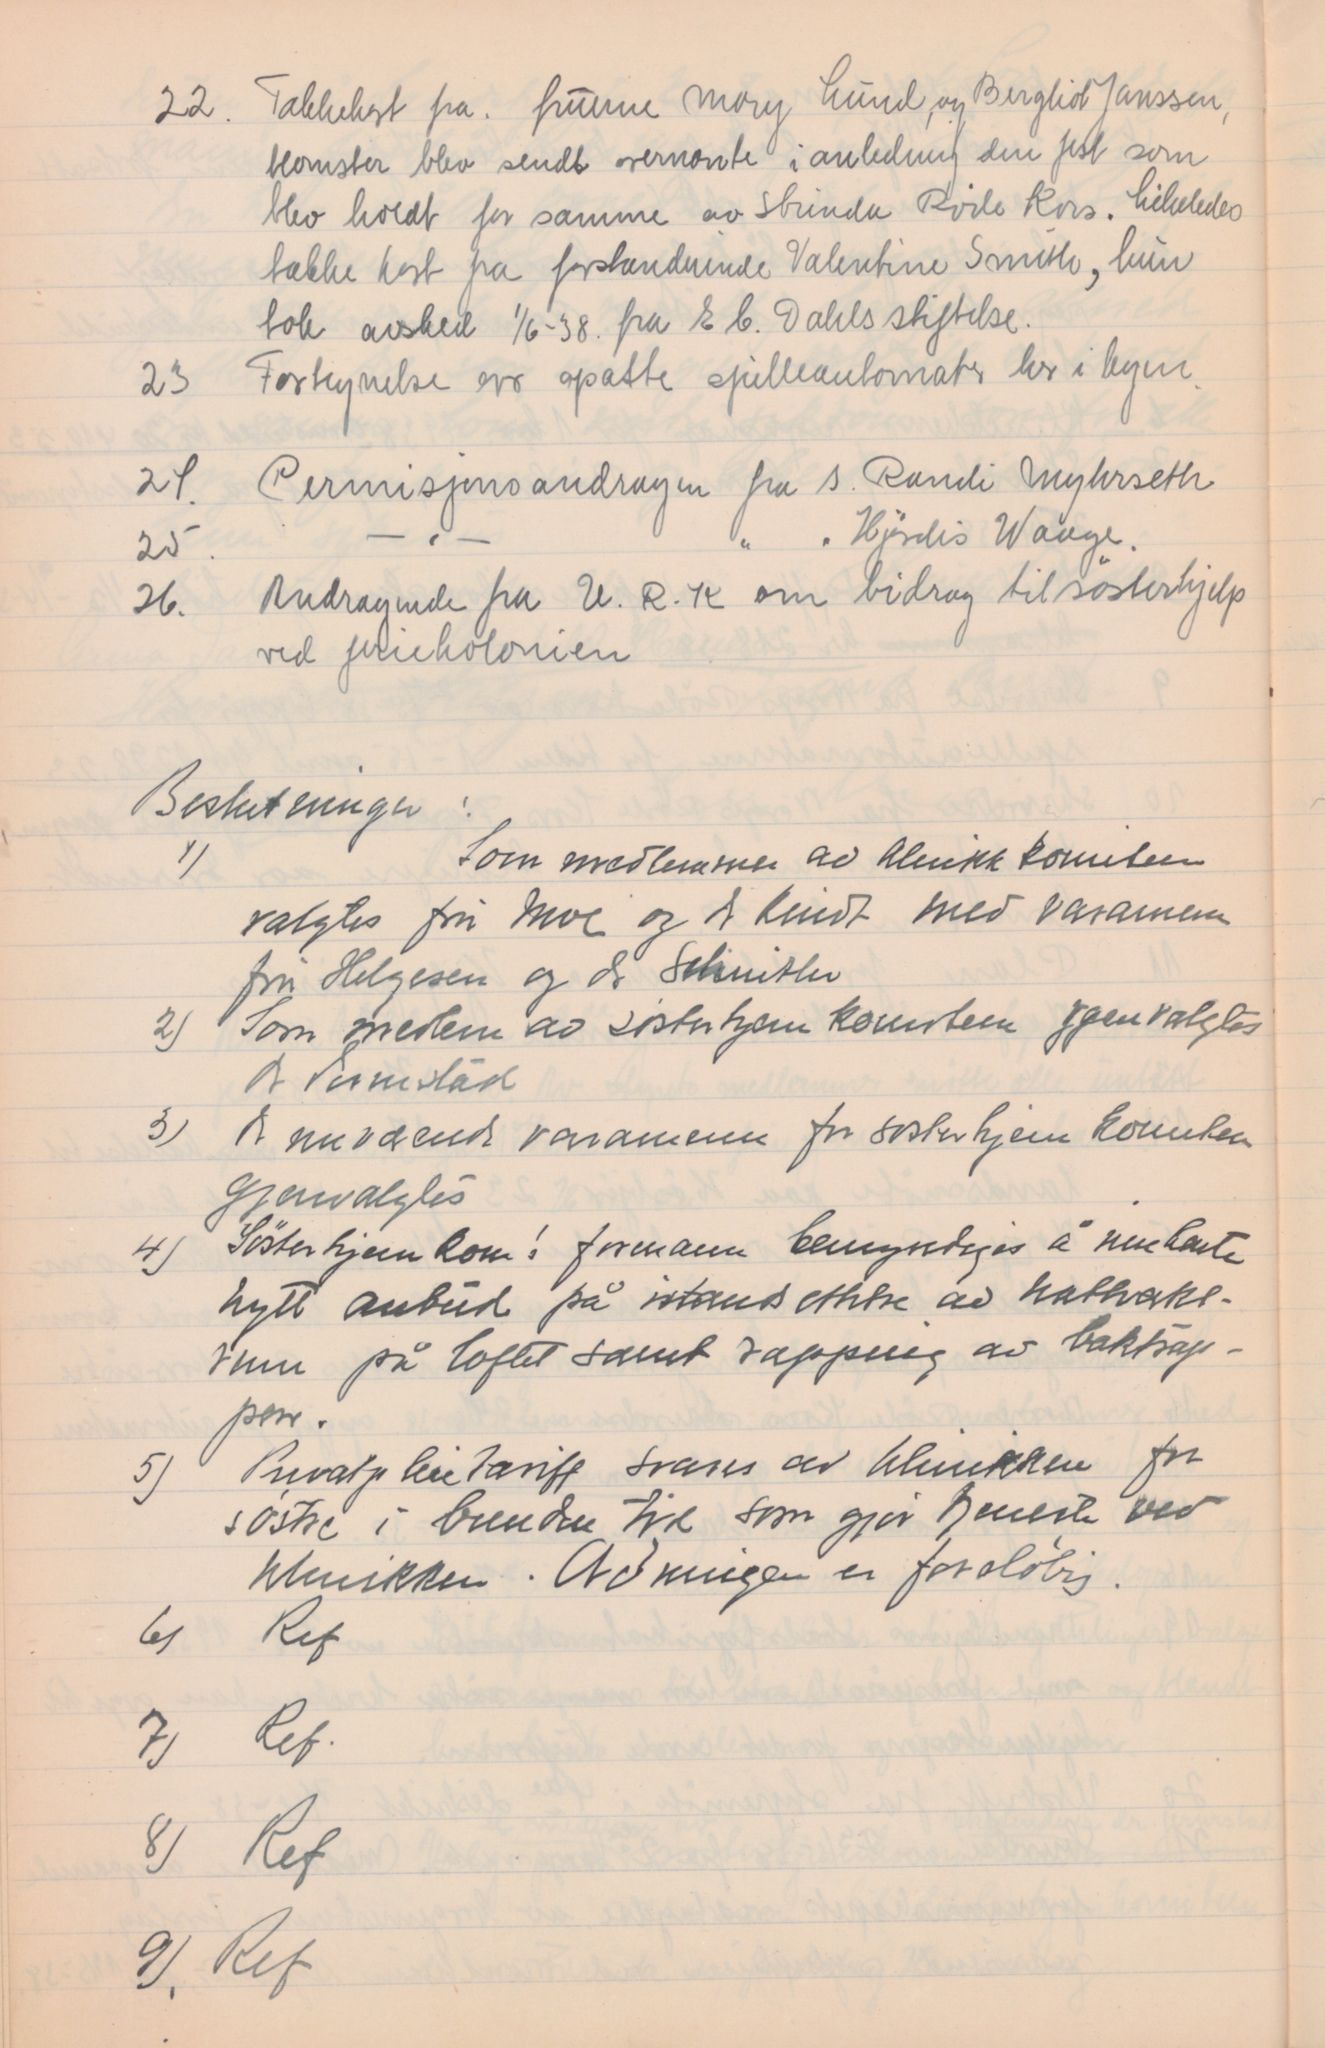 22. Takkekort fra. fruerne Mary Lund, og Bergliot Janssen,
blomster blev sendt overnevnte i anledning den fest som
blev holdt for samme av Strinda Røde Kors. Likeledes
takke kort fra forstanderinde Valentine Smith, hun
tok avsked 1/6-38. fra E C. Dahls stiftelse.
23 Fortegnelse over opsatte spilleautomater her i byen.
24. Permisjonsandragen fra s. Randi Myhrseth
25. — " — " " Hjørdis Waage.
26. Andragende fra U. R. K om bidrag til søsterhjelp
ved feriekolonien
Beslutninger :
1) Som medlemmer av klinikk komiteen
valgtes fru Moe og dr Kindt med varamenn
fru Helgesen og dr Schnitler
2) Som medlem av søsterhjem komiteen gjenvalgtes
dr
3) De nuværende varamenn for søsterhjem komiteen
gjenvalgtes
4) Søsterhjem kom: formann bemyndiges å innhente
nytt anbud på istandsettelse av nattvakt-
rum på loftet samt rapping av baktrap-
pene.
5) Privatpleietariff svares av klinikken for
søstre i bunden tid som gjør tjeneste ved
klinikken. Ordningen er foreløbig.
6) Ref
7) Ref.
8) Ref
9). Ref